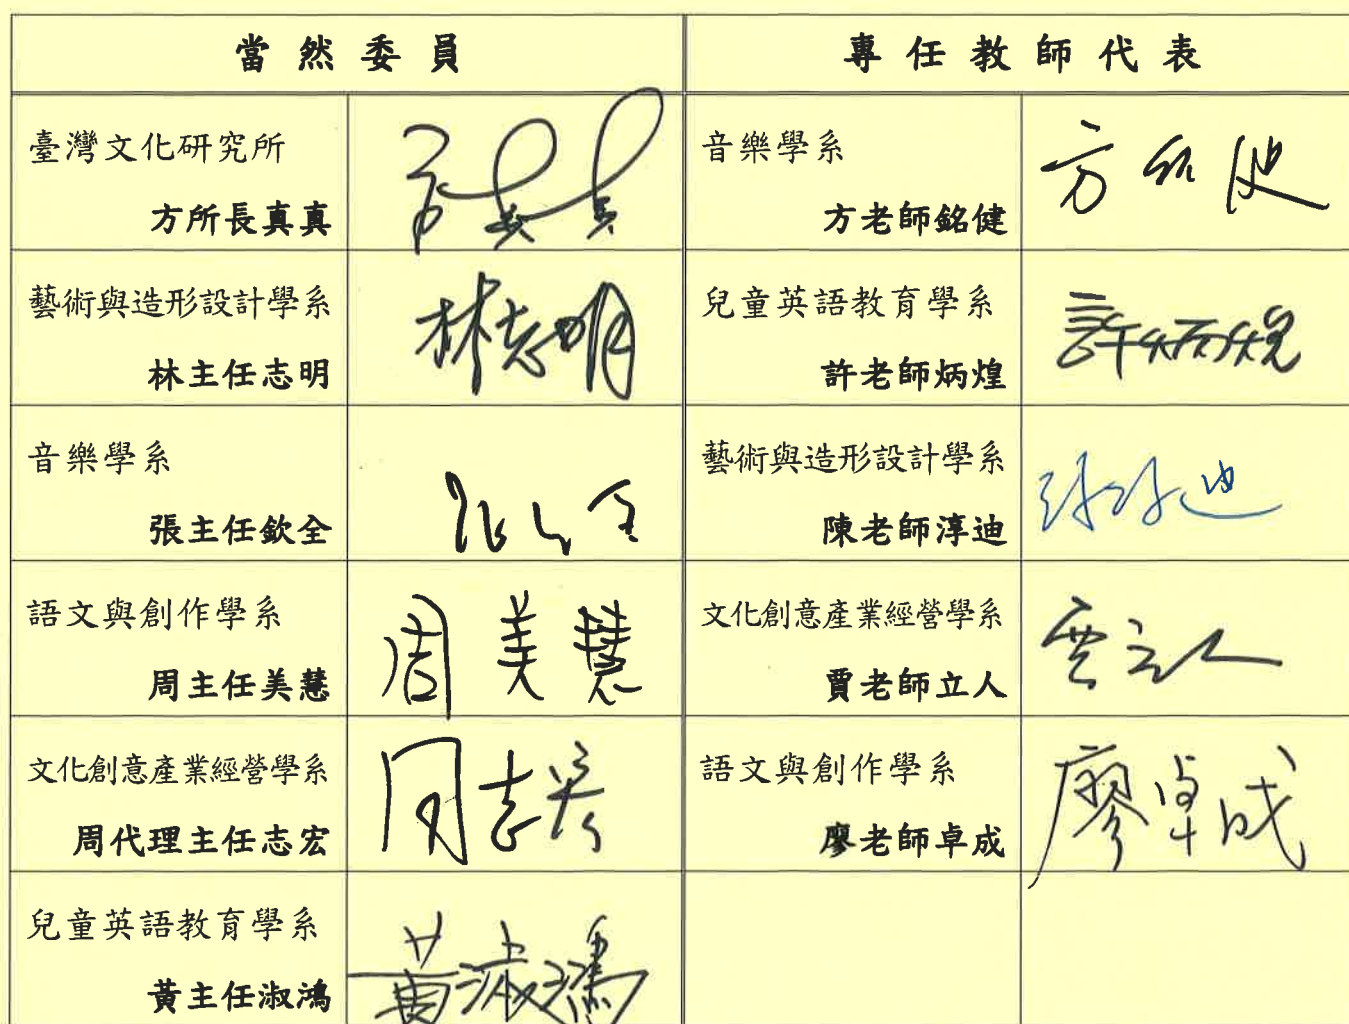 當然委員 專任教師代表
臺灣文化研究所
方所長真真 方真真
音樂學系
方老師銘健 方銘健
藝術與造形設計學系
林主任志明 林志明
兒童英語教育學系
許老師炳煌 許炳煌
音樂學系
張主任欽全 張欽全
藝術與造形設計學系
陳老師淳迪 陳淳迪
語文與創作學系
周主任美慧 周美慧
文化創意產業經營學系
賈老師立人 賈立人
文化創意產業經營學系
周代理主任志宏 周志宏
語文與創作學系
廖老師卓成 廖卓成
兒童英語教育學系
黃主任淑鴻 黃淑鴻